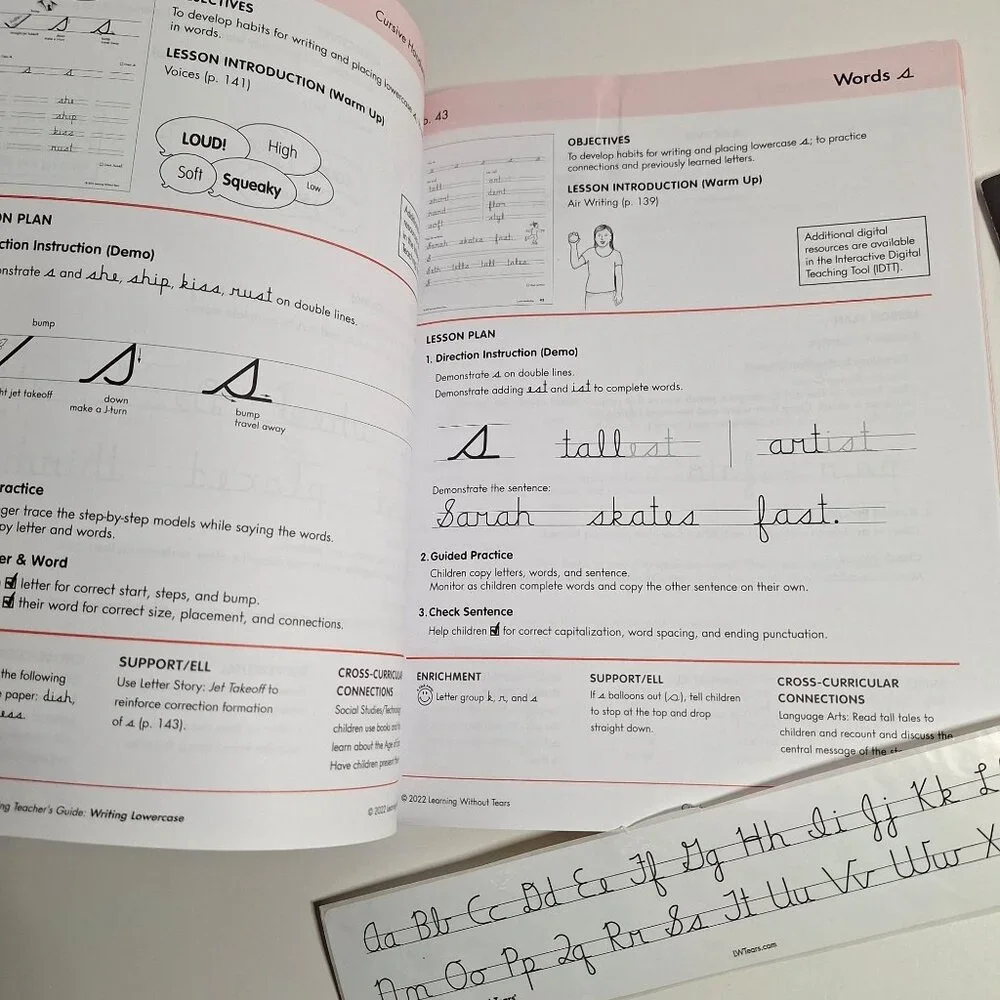 OBJECTIVES
To develop habits for writing and placing lowercase s
in words.
LESSON INTRODUCTION (Warm Up)
Voices (p. 141)
LOUD!
High
Soft
Squeaky
Low
she
ship
kiss
rust
PLAN
Instruction (Demo)
s and she, ship, kiss, rust on double lines.
bump
s
s
jet takeoff
down
make a J-turn
bump
travel away
trace the step-by-step models while saying the words.
letter and words.
& Word
letter for correct start, steps, and bump.
their word for correct size, placement, and connections.
the following
paper: dish,
SUPPORT/ELL
Use Letter Story: Jet Takeoff to
reinforce correction formation
of s (p. 143).
CROSS-CURRICULAR
CONNECTIONS
Social Studies/
children use books
learn about the Age of
Have children present
Teacher's Guide: Writing Lowercase
© 2022
Cursive
Words s
p. 43
OBJECTIVES
To develop habits for writing and placing lowercase s; to practice
connections and previously learned letters.
LESSON INTRODUCTION (Warm Up)
Air Writing (p. 139)
Additional digital
resources are available
in the Interactive Digital
Teaching Tool (IDTT).
Sarah skates fast.
LESSON PLAN
1. Direction Instruction (Demo)
Demonstrate s on double lines.
Demonstrate adding est and ist to complete words.
s tallest artist
Demonstrate the sentence:
Sarah skates fast.
2. Guided Practice
Children copy letters, words, and sentence.
Monitor as children complete words and copy the other sentence on their own.
3. Check Sentence
Help children for correct capitalization, word spacing, and ending punctuation.
ENRICHMENT
Letter group k, r, and s
SUPPORT/ELL
If s balloons out (s), tell children
to stop at the top and drop
straight down.
CROSS-CURRICULAR
CONNECTIONS
Language Arts: Read tall tales to
children and recount and discuss the
central message of the
© 2022 Learning Without Tears
Aa Bb Cc Dd Ee Ff Gg Hh Ii Jj Kk L
Mm Oo Pp Qq Rr Ss Tt Uu Vv Ww X
LWTears.com